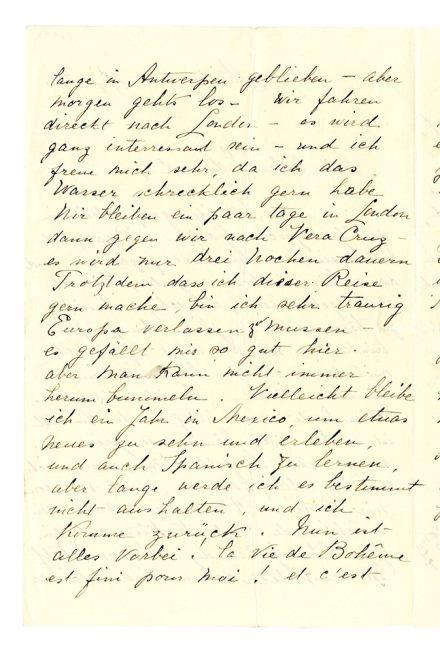 lange in Antwerpen geblieben – aber
morgen gehts los – wir fahren
direckt nach London – es wird
ganz interressant sein – und ich
freue mich sehr, da ich das
Wasser schrecklich gern habe
Wir bleiben ein paar tage in London
dann gegen wir nach Vera Cruz –
es wird nur drei Wochen dauern
Trotzldem dass ich dieser Reise
gern mache, bin ich sehr traurig
Europa verlassen zu mussen –
es gefällt mir so gut hier.
aber man kann nicht immer
herum bummeln. Vielleicht bleibe
ich ein Jahr in Mexico, um etwas
neues zu sehn und erleben,
und auch Spanisch zu lernen,
aber lange werde ich es bestimmt
nicht aushalten, und ich
komme zurück. Nun ist
alles vorbei. la vie de Bohême
est fini pour moi! et c'est